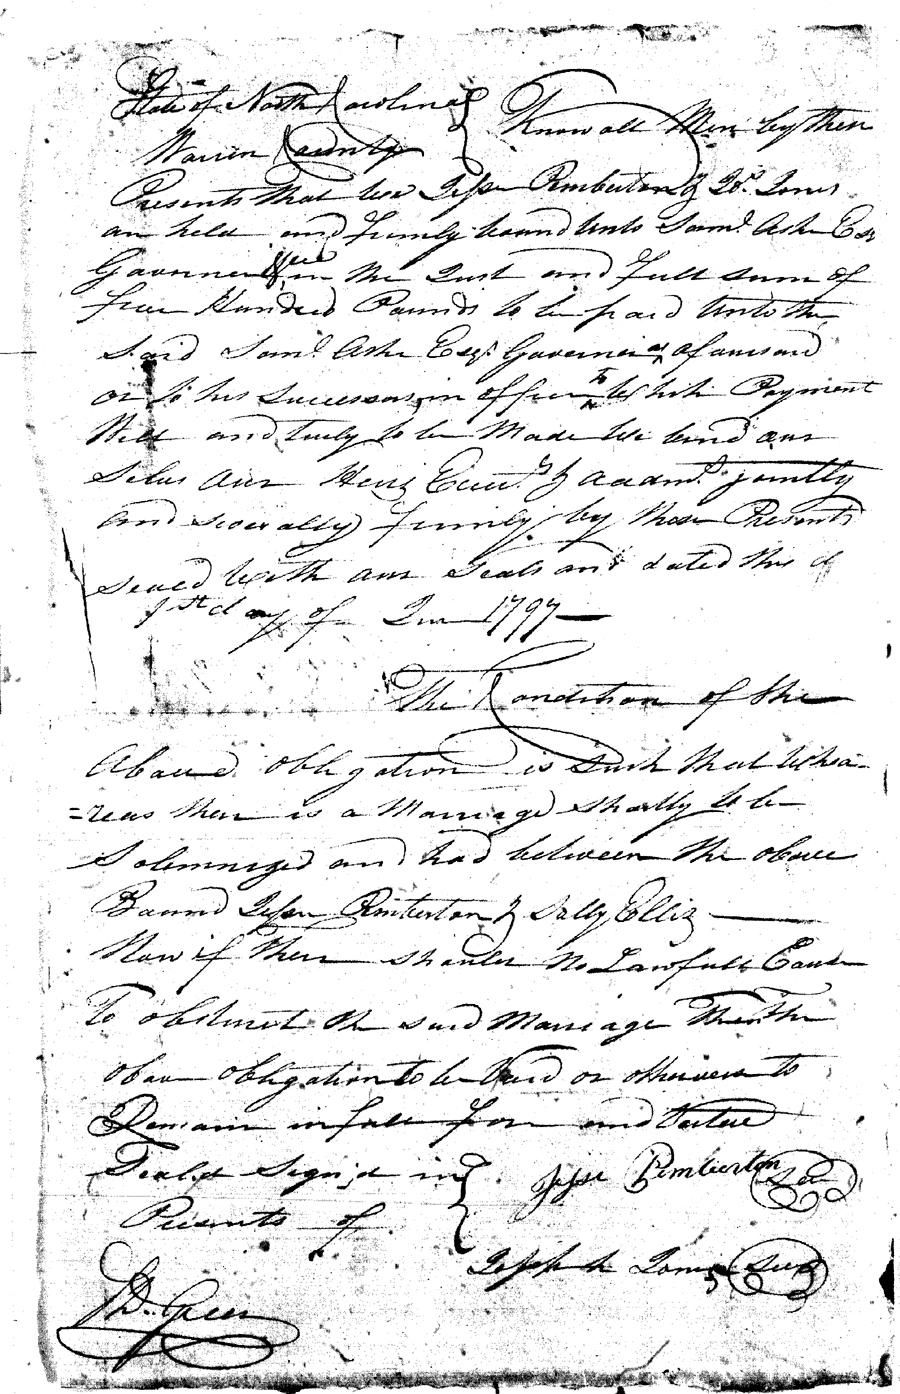 State of North Carolina } Know all Men by these
Warren County
Presents that we Jesse Pemberton & Jos. Jones
are held and firmly bound unto Saml. Ashe Esqr
Governer &c in the Just and full sum of
five Hundred Pounds to be paid unto the
Said Saml. Ashe Esqr. Governer as aforesaid
or to his Successors in office to Which Payment
Well and truly to be Made We bind our
Selves our Heirs Exers. & Acadms. jointly
and severally firmly by these Presents
Sealed With our Seals and dated this
1st day of Jun 1797
The Condition of the
Above obligation is Such that Whea-
=reas there is a Marriage Shortly to be
Solemnized and had between the above
Bound Jesse Pemberton & Sally Ellis
Now if there should No Lawfull Cause
To obstruct the said Marriage Then the
above obligation to be Void or otherwise to
Remain in full force and Vertue
Seal.d Sign.d in } Jesse Pemberton Seal
Presents of
Joseph Jones Seal
Green